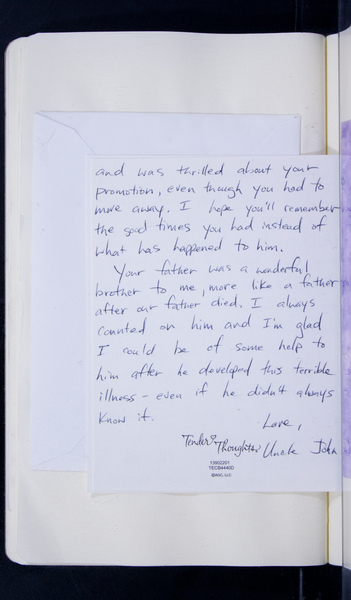 and was thrilled about your
promotion, even though you had to
move away. I hope you'll remember
the good times you had instead of
what has happened to him.
Your father was a wonderful
brother to me, more like a father
after our father died. I always
counted on him and I'm glad
I could be of some help to
him after he developed this terrible
illness - even if he didn't always
know it.
Love,
Uncle John
Tender Thoughts
13902201
TECB4440D
©AGC, LLC